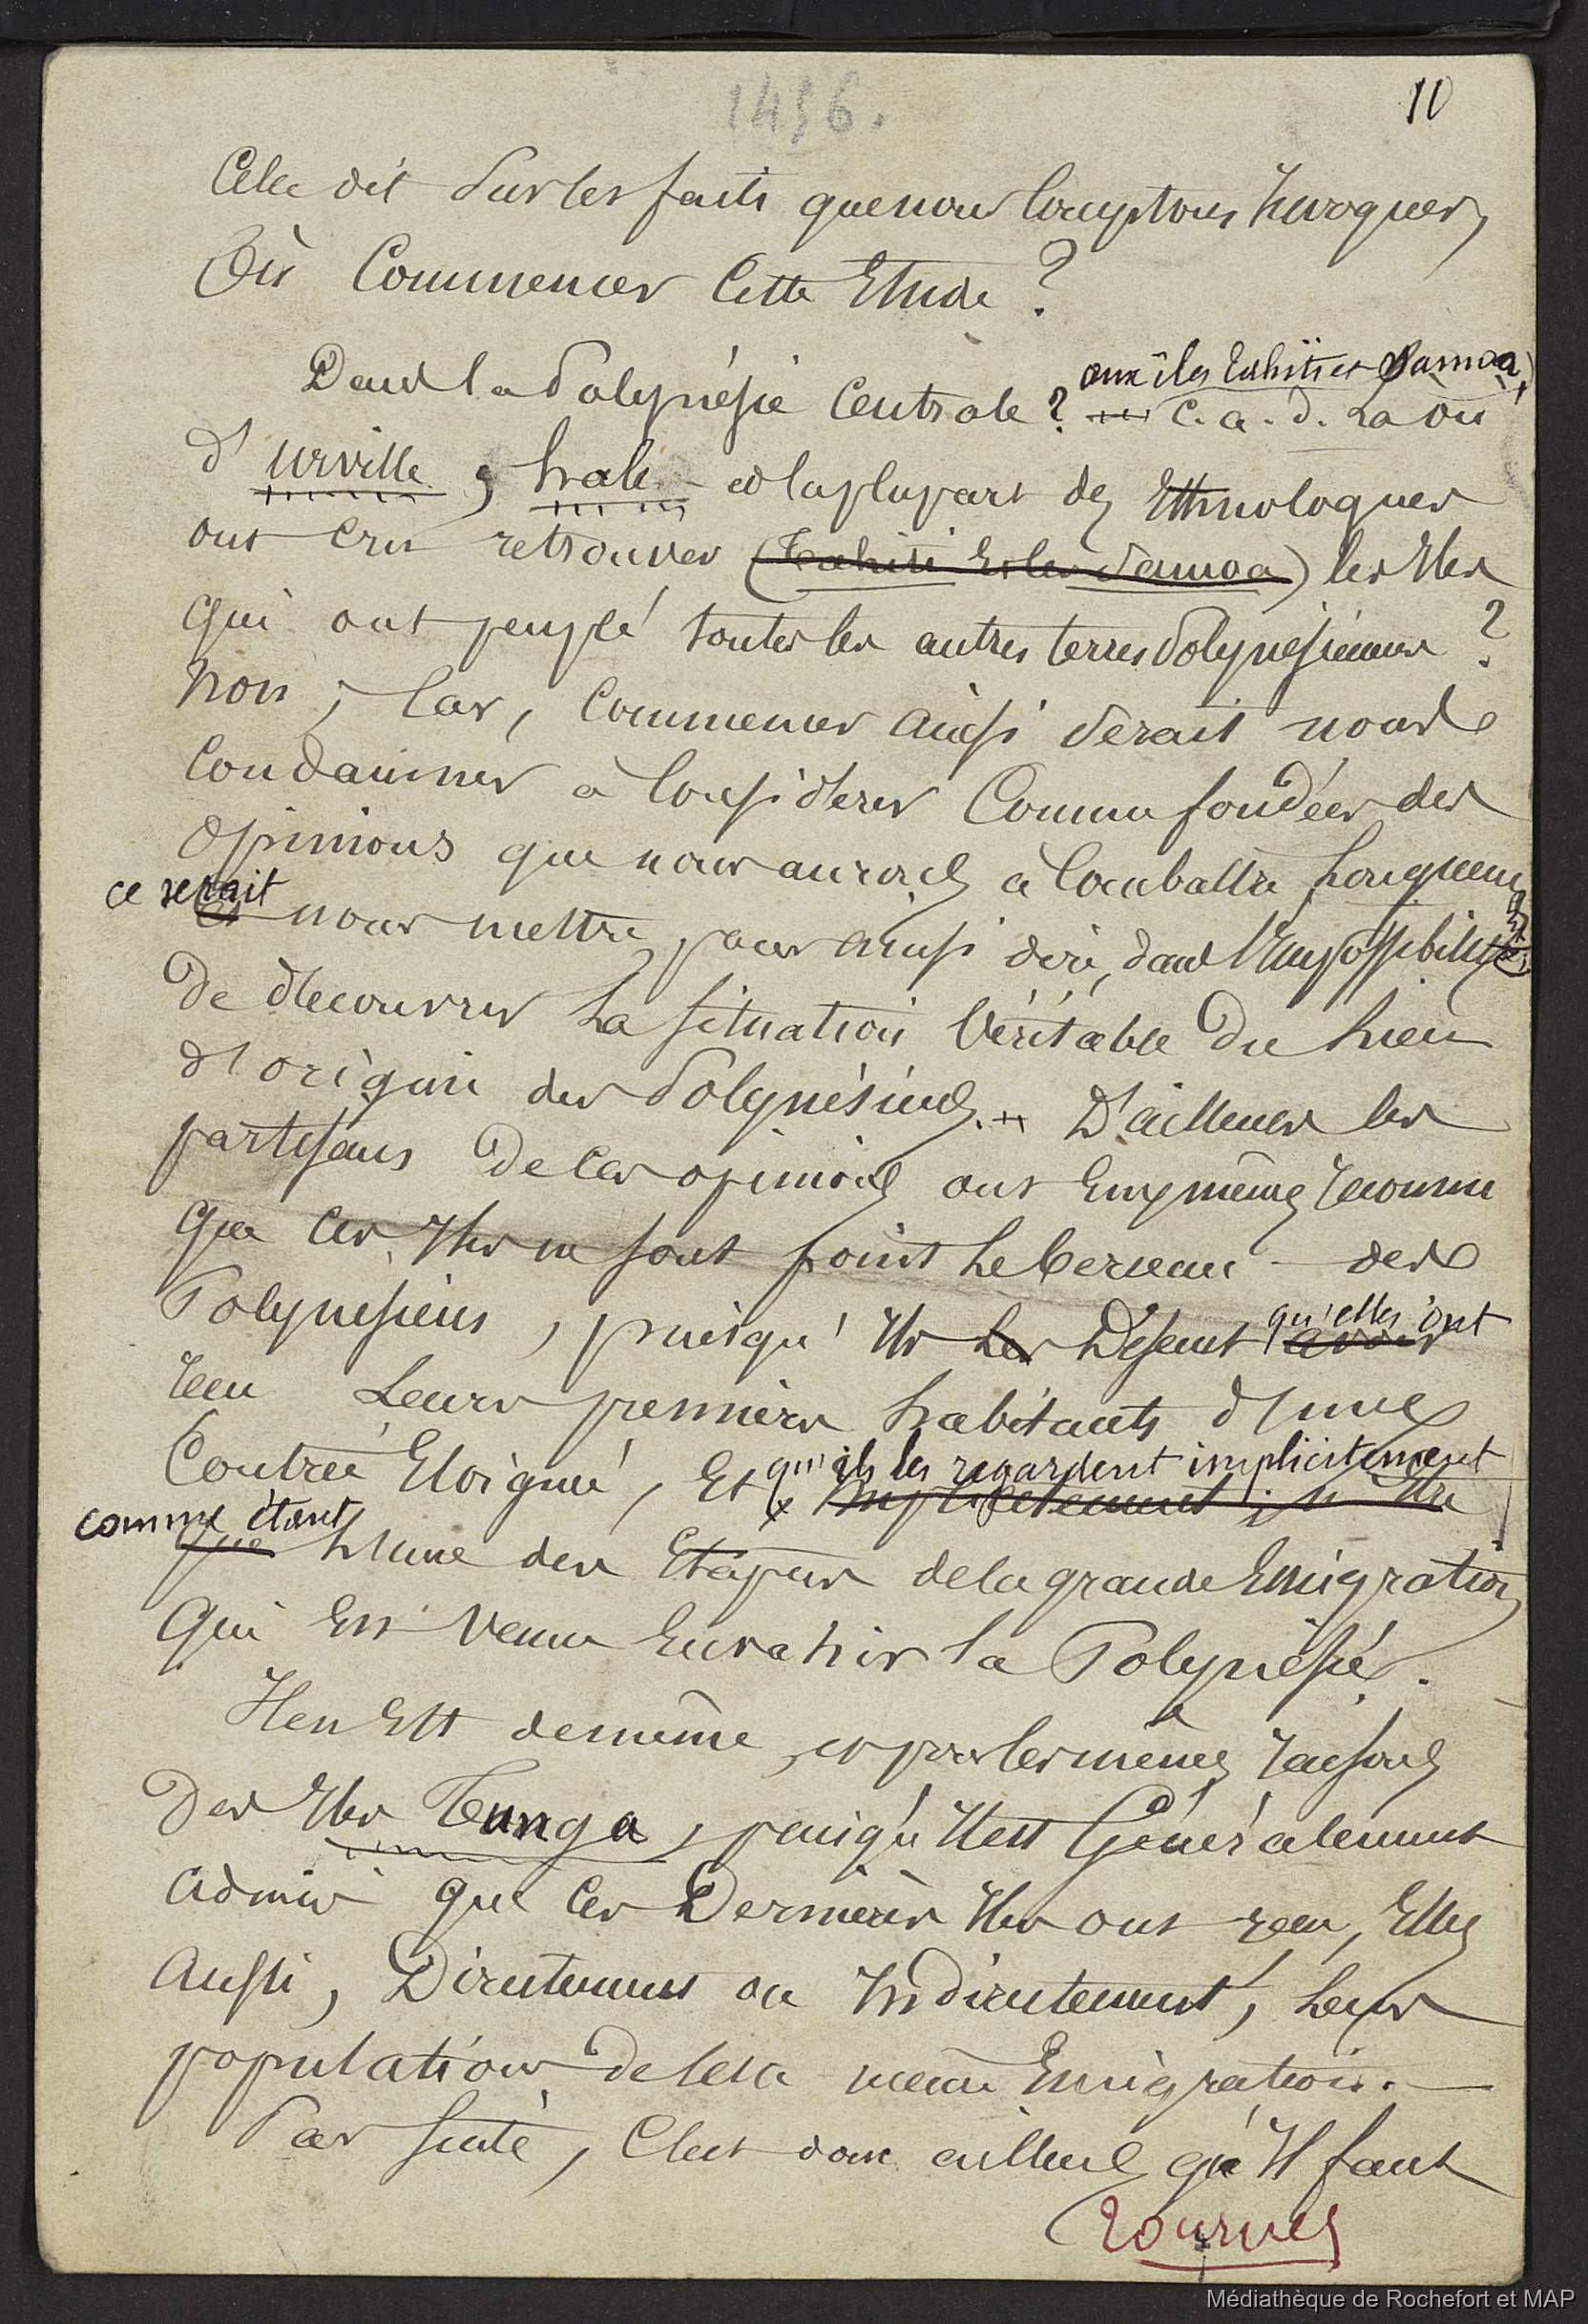 1456.
10
Cela dit sur les faits que nous comptons invoquer,
Où Commencer Cette Etude ?
aux îles Tahiti et Samoa,
Dans la Polynésie Centrale ? c. a. d. Là où
d'Urville, hale et la plupart des Ethnologues
ont cru retrouver (Tahiti et les Samoa) les Iles
qui ont peuplé toutes les autres terres Polynésiennes ?
Non ; Car, Commencer ainsi serait nous
Condamner à Considérer Comme fondées des
opinions que nous aurons à Combattre longuement
ce serait
et nous mettre, pour ainsi dire, dans l'Impossibilité
de découvrir La situation Véritable du lieu
d'origine des Polynésiens. D'ailleurs les
partisans de Ces opinions ont Eux mêmes reconnu
que Ces Iles ne sont point Le berceau des
Polynésiens, puisqu'Ils les Disent avoir
qu'elles ont
reçu Leurs premiers habitants d'une
Contrée Eloignée, Et implicitement, n'être
qu'ils les regardent implicitement
comme étant
que l'une des Etapes de la grande Emigration
Qui Est Venue Envahir la Polynésie.
Il en Est de même, et par les mêmes raisons
Des Iles Tunga, puisqu'Il est Généralement
admis que Ces Dernières Iles ont reçu, Elles
Aussi, Directement ou Indirectement, Leur
population de cette même Emigration.
Par suite, C'est donc ailleurs qu'Il faut
Tournez
Médiathèque de Rochefort et MAP